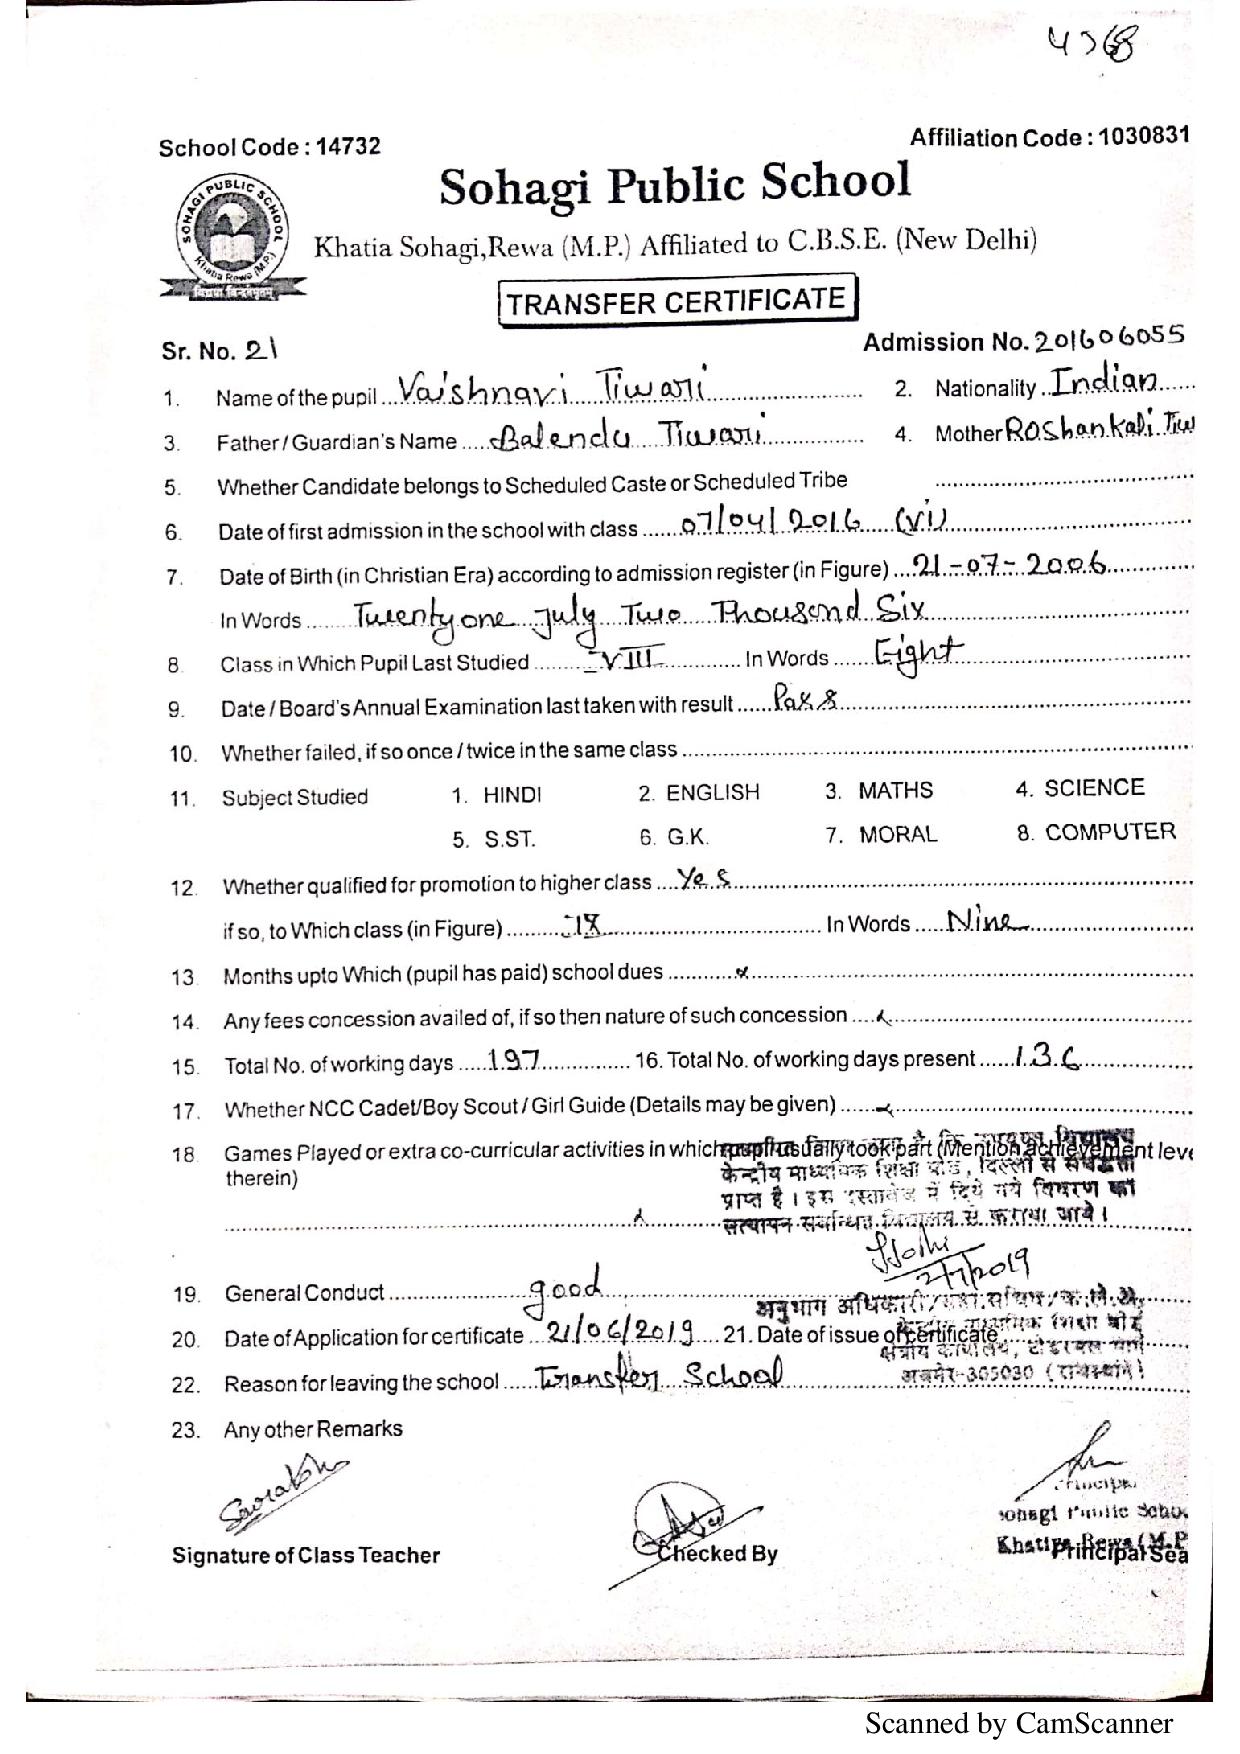 4368
School Code : 14732
Affiliation Code : 1030831
SOHAGI PUBLIC SCHOOL
Khatia Rewa (M.P.)
Sohagi Public School
Khatia Sohagi,Rewa (M.P.) Affiliated to C.B.S.E. (New Delhi)
TRANSFER CERTIFICATE
Sr. No. 21 Admission No. 201606055
1. Name of the pupil Vaishnavi Tiwari 2. Nationality Indian
3. Father / Guardian's Name Balendu Tiwari 4. Mother Roshankali Tiw
5. Whether Candidate belongs to Scheduled Caste or Scheduled Tribe
6. Date of first admission in the school with class 07/04/2016 (VI)
7. Date of Birth (in Christian Era) according to admission register (in Figure) 21-07-2006
In Words Twenty one july Two Thousand Six
8. Class in Which Pupil Last Studied VIII In Words Eight
9. Date / Board's Annual Examination last taken with result Pass
10. Whether failed, if so once / twice in the same class
11. Subject Studied 1. HINDI 2. ENGLISH 3. MATHS 4. SCIENCE
5. S.ST. 6. G.K. 7. MORAL 8. COMPUTER
12. Whether qualified for promotion to higher class Yes
if so, to Which class (in Figure) IX In Words Nine
13. Months upto Which (pupil has paid) school dues
14. Any fees concession availed of, if so then nature of such concession
15. Total No. of working days 197 16. Total No. of working days present 136
17. Whether NCC Cadet/Boy Scout / Girl Guide (Details may be given)
18. Games Played or extra co-curricular activities in which pupil usually took part (Mention achievement leve
therein)
केन्द्रीय माध्यमिक शिक्षा बोर्ड, दिल्ली से सम्बद्धता
प्राप्त है । इस दस्तावेज में दिये गये विवरण का
सत्यापन सम्बन्धित विद्यालय से कराया जाये ।
2/7/2019
19. General Conduct good
अनुभाग अधिकारी
20. Date of Application for certificate 21/06/2019 21. Date of issue of certificate
क्षेत्रीय कार्यालय, टोडरमल मार्ग
22. Reason for leaving the school Transfer School
अजमेर-305030 (राजस्थान)
23. Any other Remarks
Saurabh
Principal
Sohagi Public Schoo
Khatia Rewa (M.P
Signature of Class Teacher Checked By Principal Sea
Scanned by CamScanner